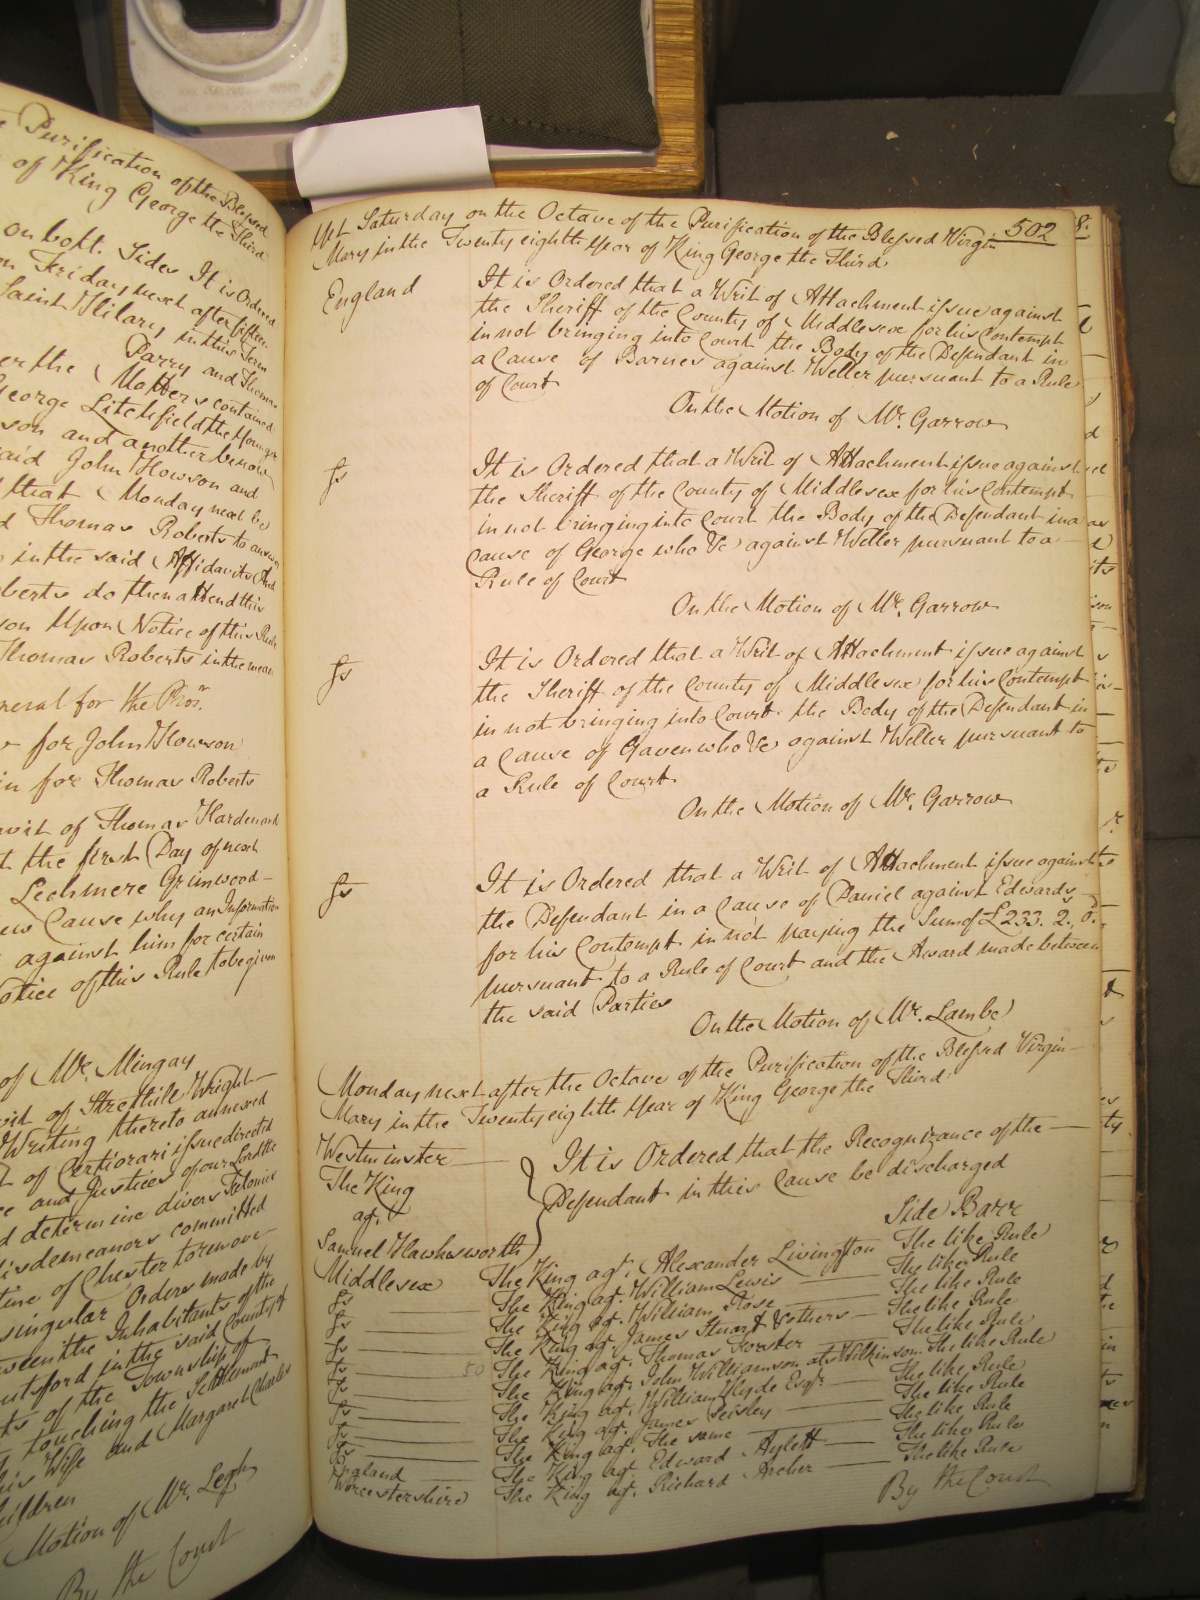 Purification of the Blessed
of King George the Third
on both Sides It is Ordered
on Friday next after fifteen
Saint Hilary in this Term
Parry and Thomas
the Matters contained
George Litchfield the younger
son and another be now
said John Howson and
that Monday next be
Thomas Roberts to answer
in the said Affidavits And
Roberts do then attend this
son Upon Notice of this Rule
Thomas Roberts in the mean
neral for the Pros.r
for John Howson
in for Thomas Roberts
of Thomas Harden and
the first Day of next
Lechmere Grimwood
Cause why an Information
against him for certain
otice of this Rule to be given
of Mr. Mingay
of Strethill Wright
Writing thereto annexed
of Certiorari issue directed
and Justices of our Lord the
determine divers Felonies
isdemeanors committed
tine of Chester to remove
singular Orders made by
the Inhabitants of the
utsford in the said County of
of the Township of
touching the Settlement
his Wife and Margaret Charles
hildren
Motion of Mr. Legh
By the Court
502
Yet Saturday on the Octave of the Purification of the Blessed Virgin
Mary in the Twenty eighth Year of King George the Third
England It is Ordered that a Writ of Attachment issue against
the Sheriff of the County of Middlesex for his Contempt
in not bringing into Court the Body of the Defendant in
a Cause of Barnes against Weller pursuant to a Rule
of Court
On the Motion of Mr. Garrow
Ss It is Ordered that a Writ of Attachment issue against
the Sheriff of the County of Middlesex for his Contempt
in not bringing into Court the Body of the Defendant in a
Cause of George who &c against Weller pursuant to a
Rule of Court
On the Motion of Mr. Garrow
Ss It is Ordered that a Writ of Attachment issue against
the Sheriff of the County of Middlesex for his Contempt
in not bringing into Court the Body of the Defendant in
a Cause of Gaven who &c against Weller pursuant to
a Rule of Court
On the Motion of Mr. Garrow
Ss It is Ordered that a Writ of Attachment issue against
the Defendant in a Cause of Daniel against Edwards
for his Contempt in not paying the Sum of £233. 2s. 0d.
pursuant to a Rule of Court and the Award made between
the said Parties
On the Motion of Mr. Lambe
Monday next after the Octave of the Purification of the Blessed Virgin
Mary in the Twenty eighth Year of King George the Third
Westminster
The King
agt.
Samuel Hawkesworth
It is Ordered that the Recognizance of the
Defendant in this Cause be discharged
Side Barr
Middlesex The King agt. Alexander Livingston The like Rule
Ss The King agt. William Lewis The like Rule
Ss The King agt. William Rose The like Rule
Ss The King agt. James Stuart & others The like Rule
Ss The King agt. Thomas Forster The like Rule
Ss 50 The King agt. John Williamson ats Wilkinson The like Rule
Ss The King agt. William Hyde Esqr. The like Rule
Ss The King agt. James Seisley The like Rule
Ss The King agt. The same The like Rule
England The King agt. Edward Aylett The like Rule
Worcestershire The King agt. Richard Archer The like Rule
By the Court